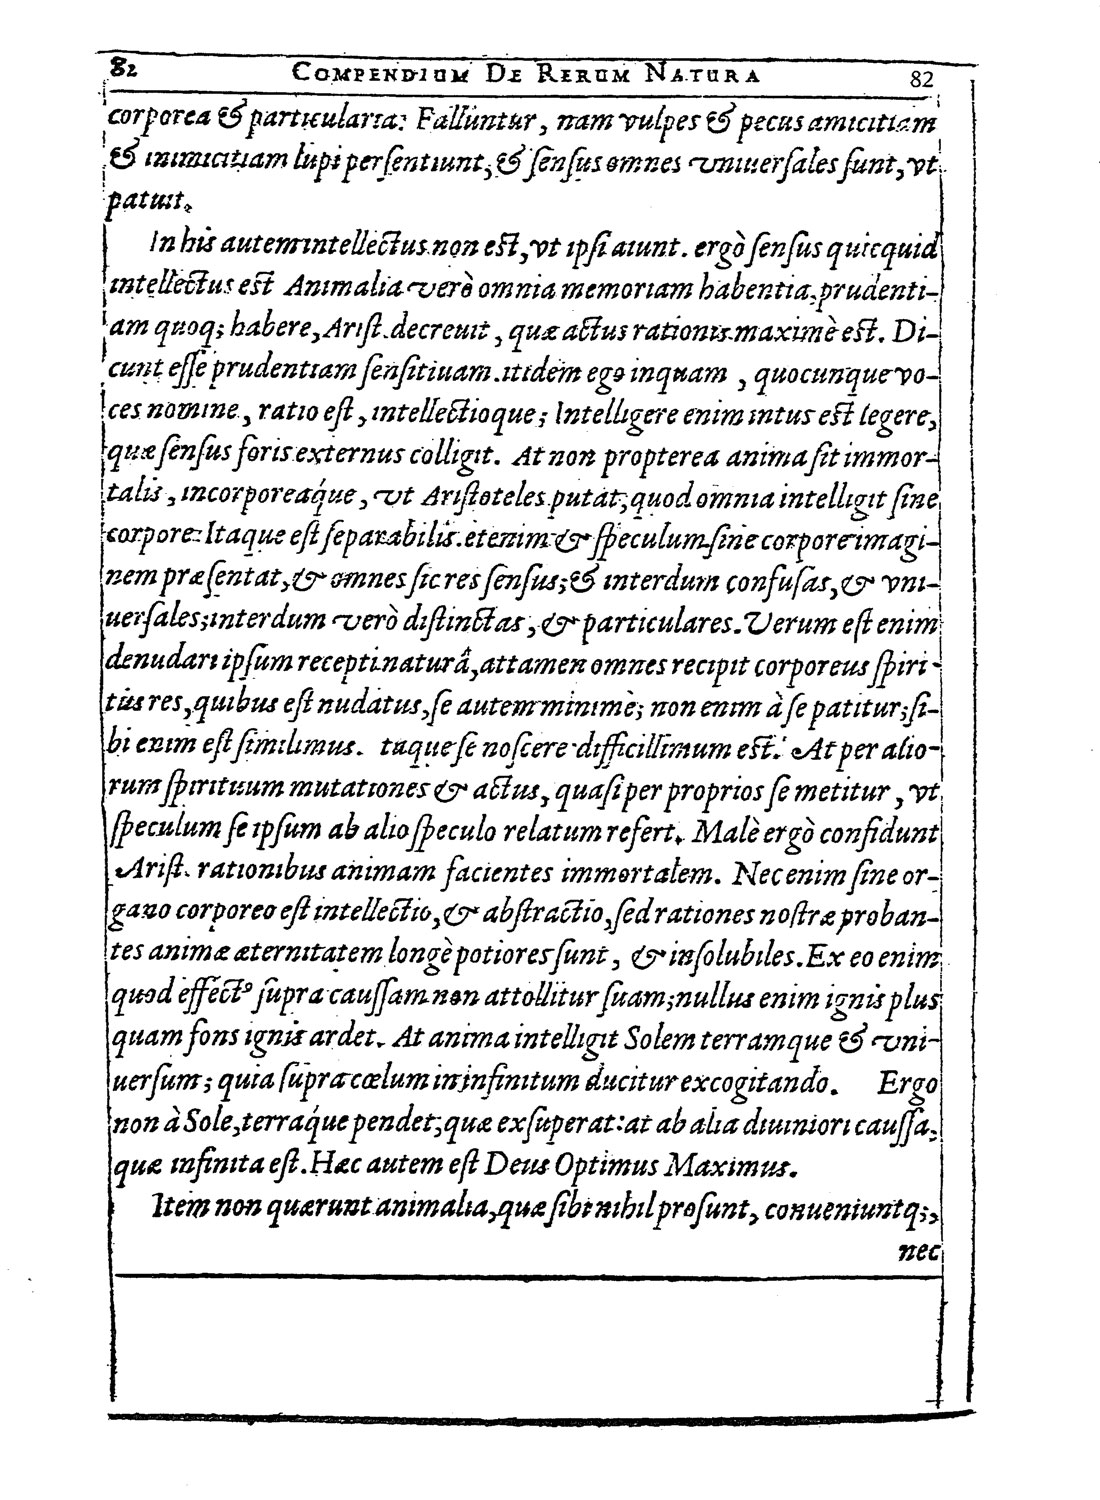 82 COMPENDIUM DE RERUM NATURA 82
corporea & particularia? Falluntur, nam vulpes & pecus amicitiam
& inimicitiam lupi persentiunt; & sensus omnes vniuersales sunt, vt
patuit.
In his autem intellectus non est, vt ipsi aiunt. ergò sensus quicquid
intellectus est Animalia verò omnia memoriam habentia, prudenti-
am quoq; habere, Arist. decreuit, quæ actus rationis maximè est. Di-
cunt esse prudentiam sensitiuam. itidem ego inquam, quocunque vo-
ces nomine, ratio est, intellectioque; Intelligere enim intus est legere,
quæ sensus foris externus colligit. At non propterea anima sit immor-
talis, incorporeáque, vt Aristoteles putat, quod omnia intelligit sine
corpore: Itaque est separabilis. etenim & speculum sine corpore imagi-
nem præsentat, & omnes sic res sensus; & interdum confusas, & vni-
uersales; interdum verò distinctas, & particulares. Verum est enim
denudari ipsum recepti naturâ, attamen omnes recipit corporeus spiri-
tus res, quibus est nudatus, se autem minimè; non enim à se patitur; si-
bi enim est similimus. taque se noscere difficillimum est. At per alio-
rum spirituum mutationes & actus, quasi per proprios se metitur, vt
speculum se ipsum ab alio speculo relatum refert. Malè ergò confidunt
Arist. rationibus animam facientes immortalem. Nec enim sine or-
gano corporeo est intellectio, & abstractio, sed rationes nostræ proban-
tes animæ æternitatem longè potiores sunt, & insolubiles. Ex eo enim
quod effectº supra caussam non attollitur suam; nullus enim ignis plus
quam fons ignis ardet. At anima intelligit Solem terramque & vni-
uersum; quia supra cœlum in infinitum ducitur excogitando. Ergo
non à Sole, terráque pendet, quæ exsuperat: at ab alia diuiniori caussa,
quæ infinita est. Hæc autem est Deus Optimus Maximus.
Item non quærunt animalia, quæ sibi nihil prosunt, conueniuntq;,
nec